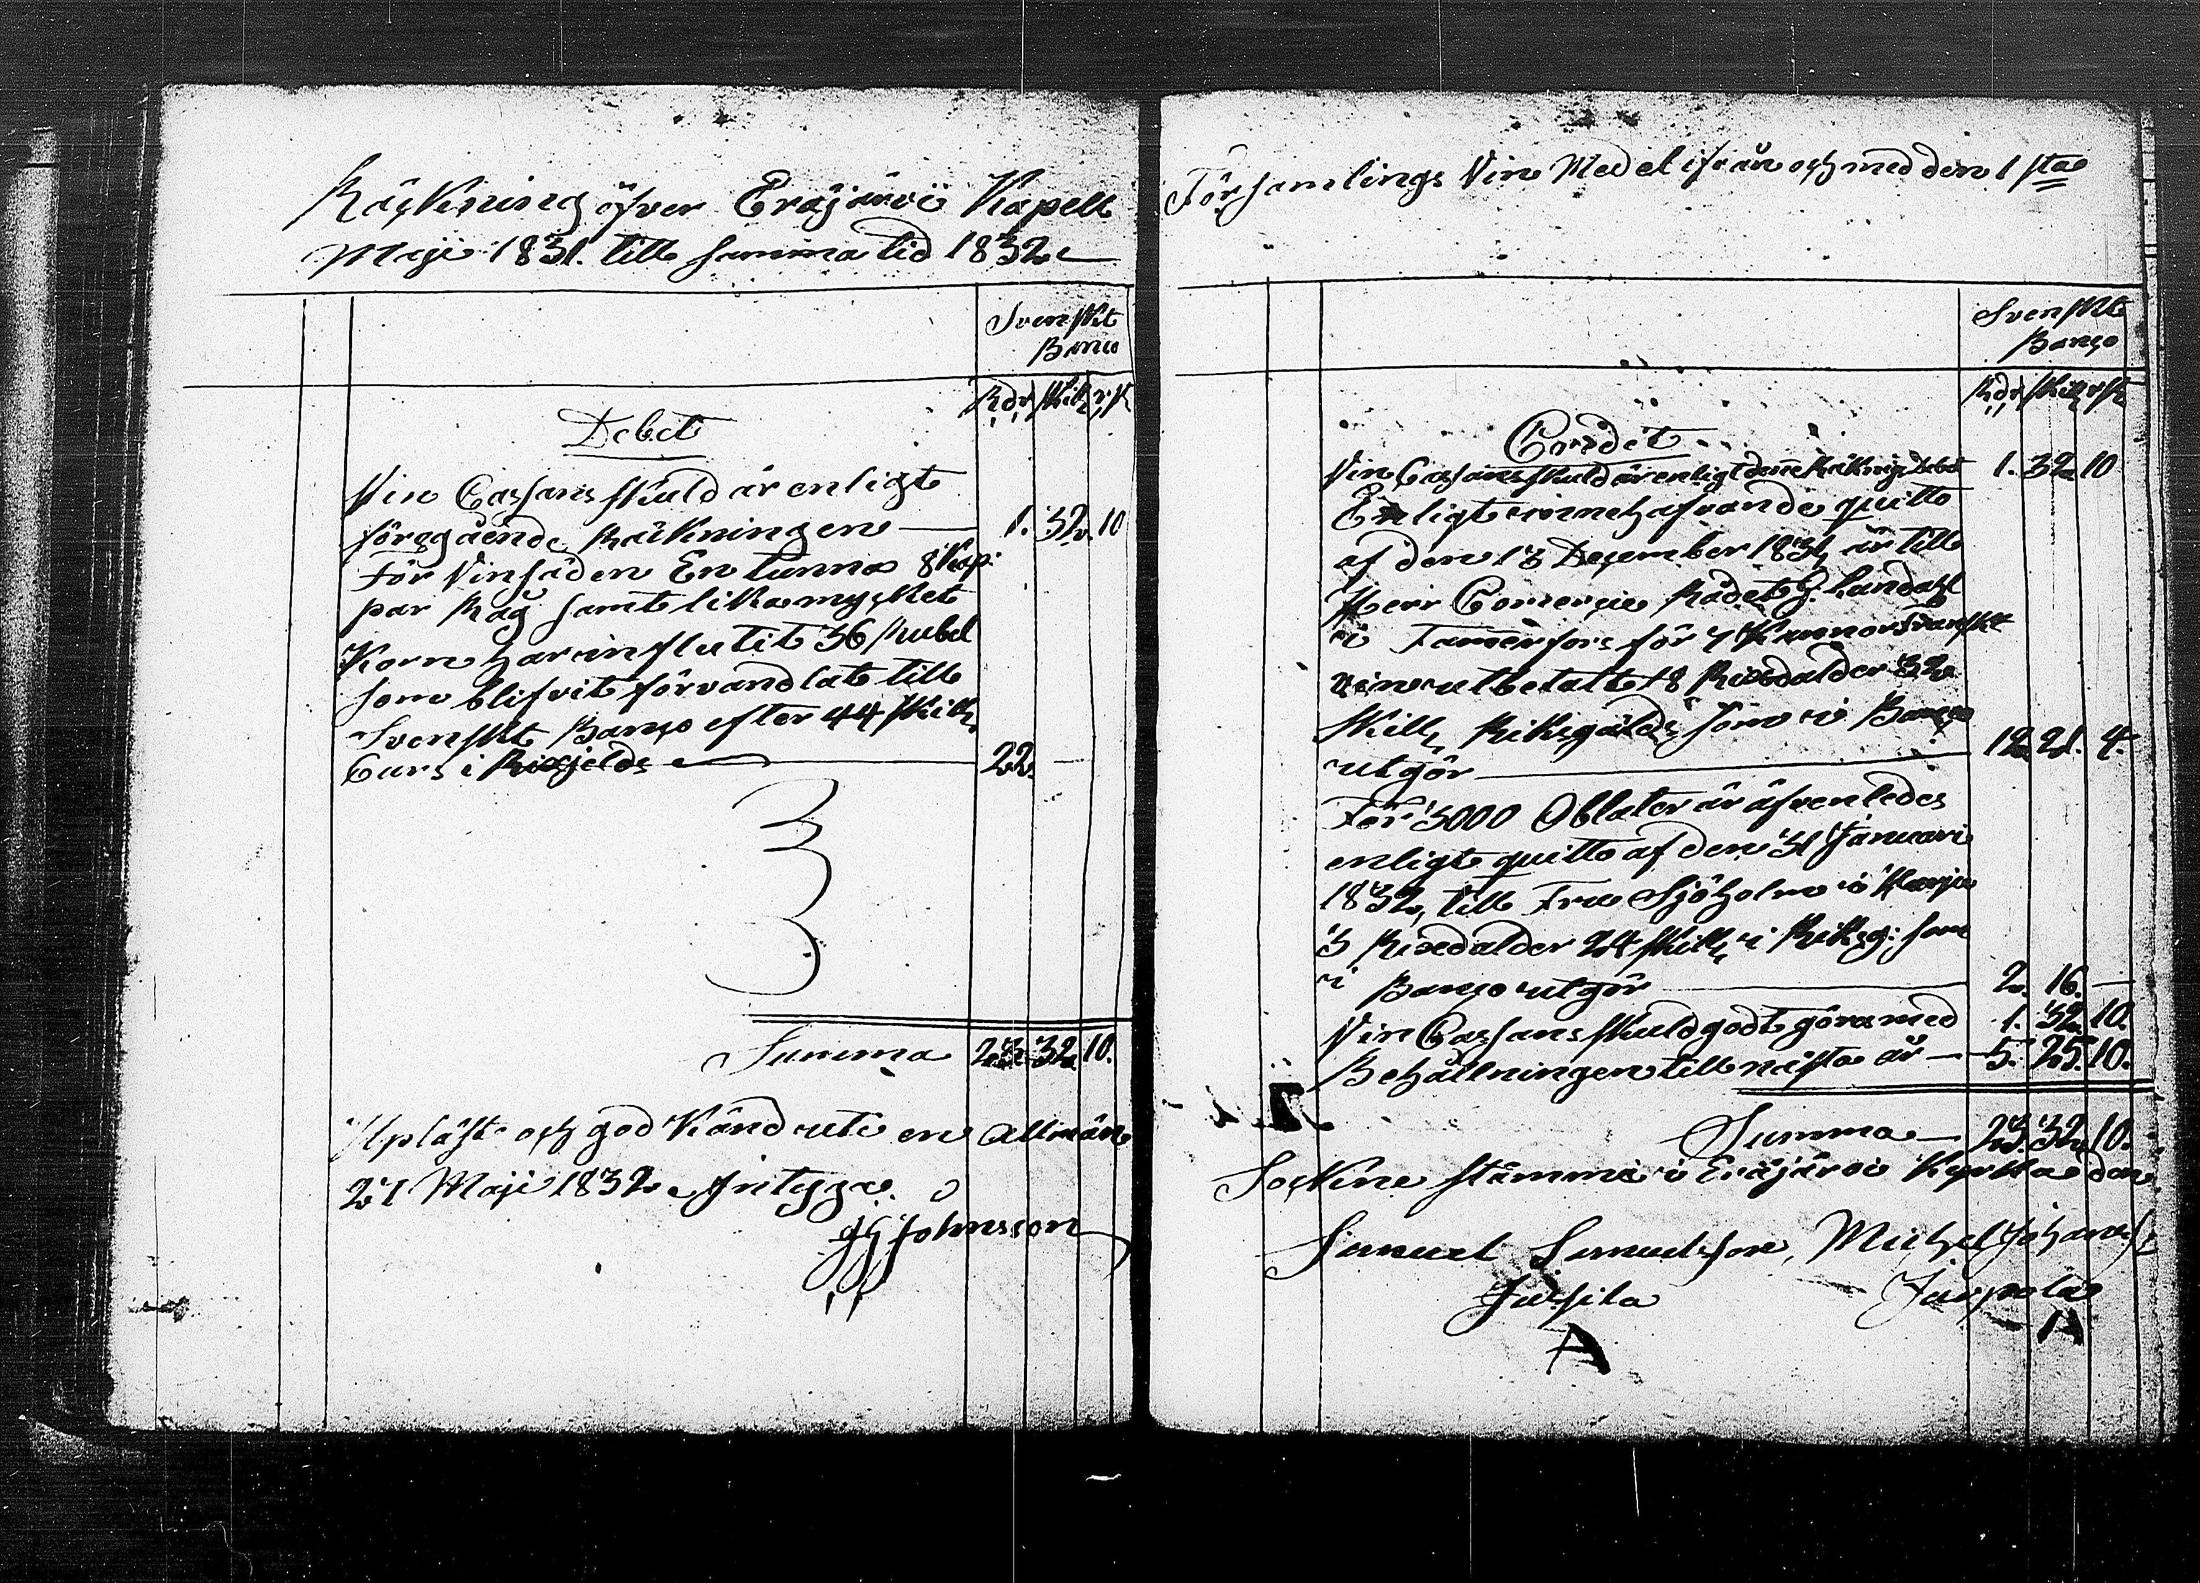 Räckning öfver Eräjärvi Kapell
Maji 1831. till samma tid 1832
Svenskt
Banco
Rdr skill r:st
Debet
Vin Cassans skuld är enligt
föregående Räckningen 1. 32. 10
För Vinsäden En tunna 8 Kap-
par Råg samt lika mycket
Korn har influtit 36 Rubel
som blifvit förvandlat till
Svenskt Banco efter 44 skill
Curs i Rixgjelds 22 —
Summa 23. 32. 10.
Upläst och god Känd uti en Allmän
27 Maji 1832 intyga
Johnsson
Församlings Vin Medel ifrån och med den 1 sta
Svenskt
Banco
Rdr skill rst
Credit
Vin Cassans skuld är enligt denne Räkning Debet 1. 32. 10
Enligt innehafvande quitto
af den 13 December 1831, är till
Herr Comercie Rådet G. Lundahl
i Tamerfors för 7 Kannor Franskt
vin utbetalt 18 Rixdalder 32
skill, Riksgälds, som i Banco
utgör 12 21. 4.
För 3000 Oblater är äfvenledes
enligt quitto af den 31 Januari
1832, till Fru Sjöholm i
3 Rixdalder 24 skill, i Riksg: som
i Banco utgör 2. 16. —
Vin Cassans skuld godt göras med 1. 32. 10.
Behållningen till nästa år — 5. 25. 10.
Summa — 23. 32. 10.
Sockne stämma i Eräjärvi Kyrka den
Samuel Samuelsson, Michel
Jussila
A